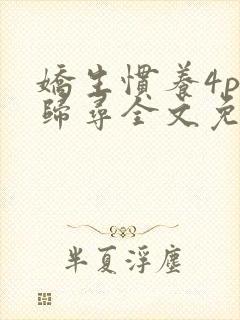 嬌生慣養4p
歸尋全文免
半夏浮塵